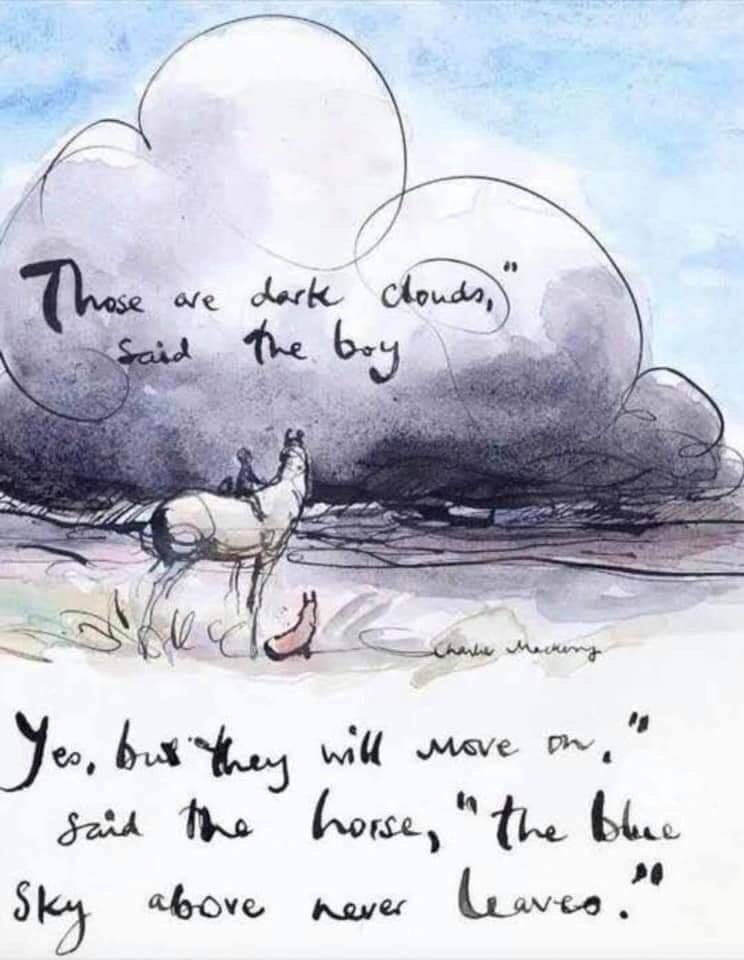 Those are dark clouds,"
said the boy
Charlie Mackesy
Yes, but they will move on,"
said the horse, "the blue
sky above never leaves."